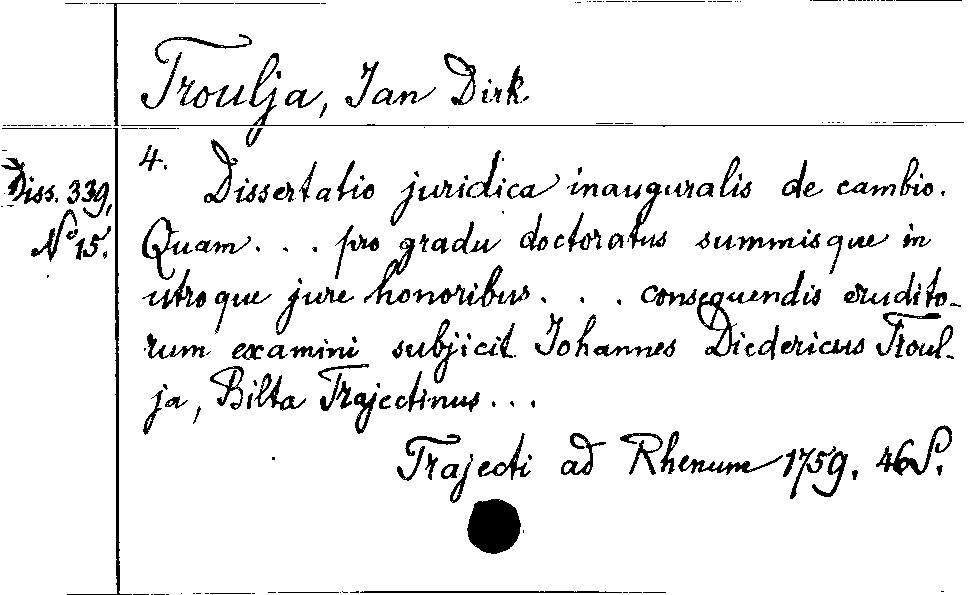 Troulja, Jan Dirk
4.
Diss. 339,
No 15.
Dissertatio juridica inauguralis de cambio.
Quam . . . pro gradu doctoratus summisque in
utroque jure honoribus . . . consequendis erudito-
rum examini subjicit Johannes Diedericus Troul-
ja, Bilta Trajectinus . . .
Trajecti ad Rhenum 1759. 46 S.